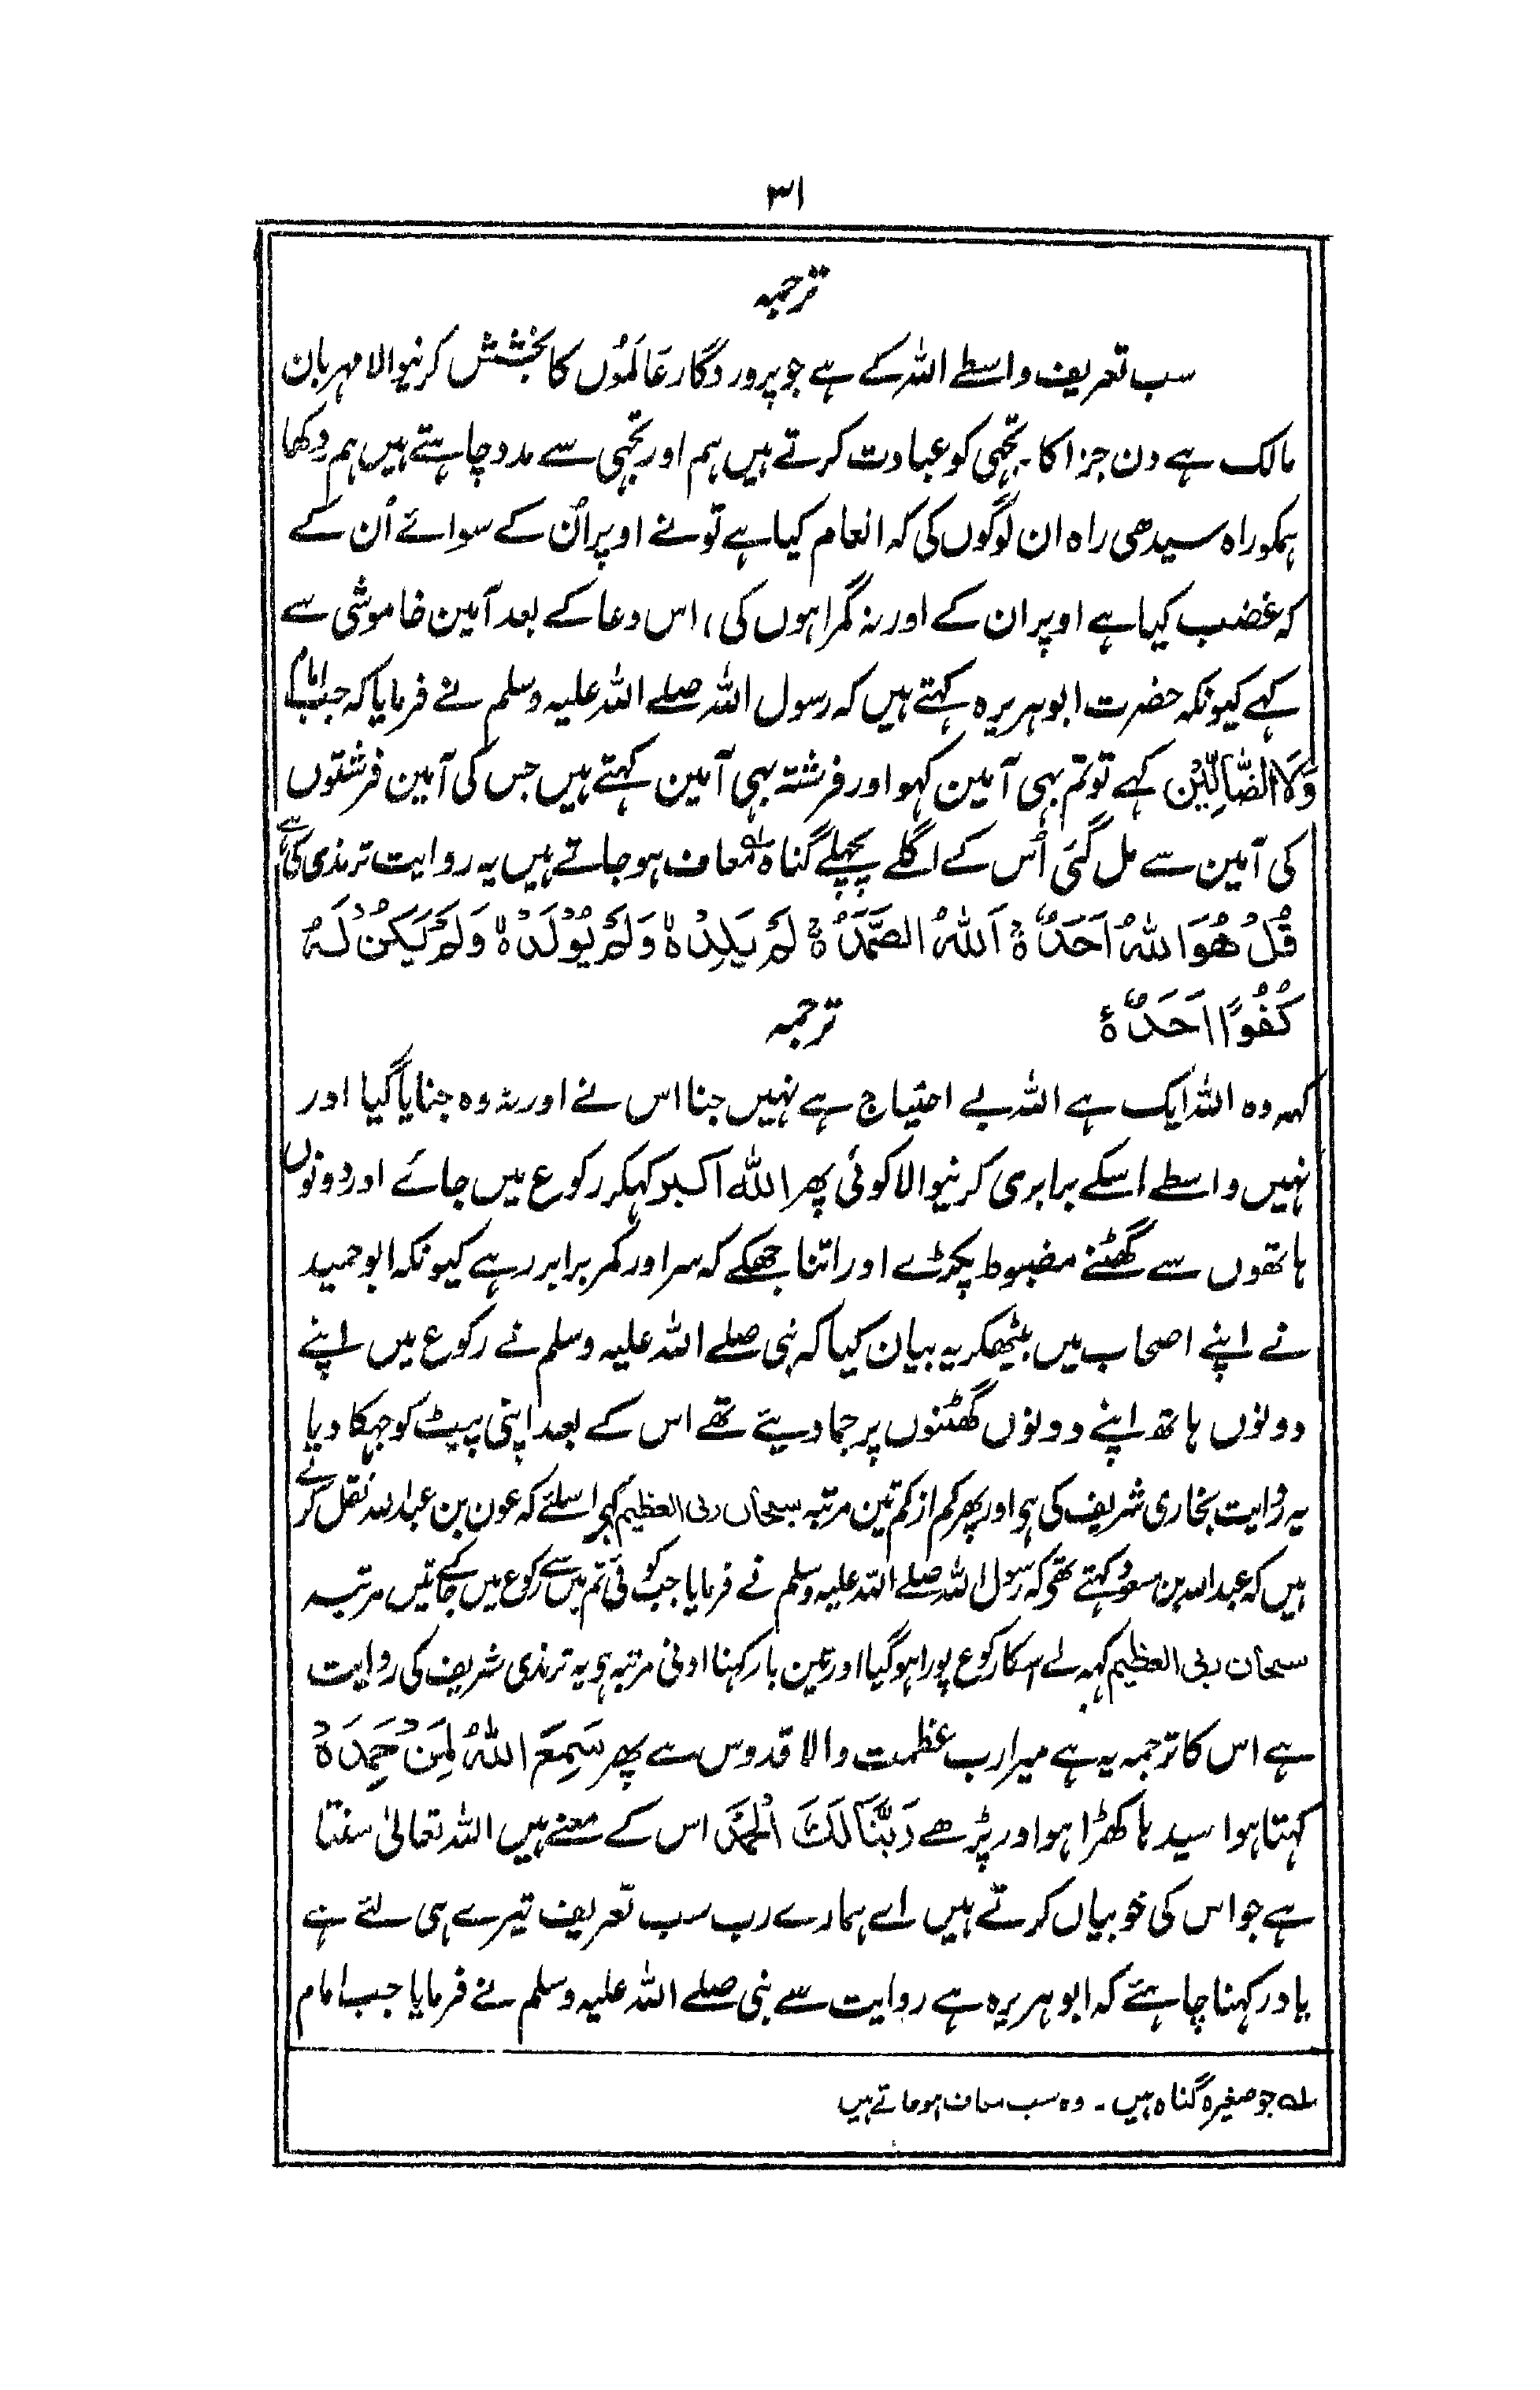 ۳۱
ترجمہ
سب تعریف واسطے اللہ کے ہے جو پروردگار عَالَمُوں کا بخشش کرنیوالا مہربان
مالک ہے دن جزا کا۔ تجہی کو عبادت کرتے ہیں ہم اور تجہی سے مدد چاہتے ہیں ہم دکھا
ہمکو راہ سیدھی راہ ان لوگوں کی کہ انعام کیا ہے تونے اوپر اُن کے سوائے اُن کے
کہ غضب کیا ہے اوپر ان کے اور نہ گمراہوں کی، اس دعا کے بعد آمین خاموشی سے
کہے کیونکہ حضرت ابوہریرہ کہتے ہیں کہ رسول اللہ صلے اللہ علیہ وسلم نے فرمایا کہ جب امام
وَلَا الضَّالِّیْن کہے تو تم بہی آمین کہو اور فرشتہ بہی آمین کہتے ہیں جس کی آمین فرشتوں
کی آمین سے مل گئی اُس کے اگلے پچہلے گناہ لہ معاف ہو جاتے ہیں یہ روایت ترمذی کی ہے
قُلْ هُوَ اللهُ اَحَدٌ ہ اَللهُ الصَّمَدُ ہ لَمْ يَلِدْ ہ وَلَمْ يُوْلَدْ ہ وَلَمْ يَكُنْ لَهٗ
كُفُوًا اَحَدٌ ہ ترجمہ
کہہ وہ اللہ ایک ہے اللہ بے احتیاج ہے نہیں جنا اس نے اور نہ وہ جنایا گیا اور
نہیں واسطے اسکے برابری کرنیوالا کوئی پھر اللہ اکبر کہکر رکوع میں جائے اور دونوں
ہاتھوں سے گھٹنے مضبوط پکڑے اور اتنا جھکے کہ سر اور کمر برابر رہے کیونکہ ابوحمید
نے اپنے اصحاب میں بیٹھکر یہ بیان کیا کہ نبی صلے اللہ علیہ وسلم نے رکوع میں اپنے
دونوں ہاتھ اپنے دونوں گھٹنوں پر جما دیئے تھے اس کے بعد اپنی پیٹ کو جہکا دیا
یہ روایت بخاری شریف کی ہی اور پھر کم از کم تین مرتبہ سبحان ربی العظیم کہے اسلئے کہ عون بن عبد اللہ نقل کرتے
ہیں کہ عبد اللہ بن مسعود کہتے تھی کہ رسول اللہ صلے اللہ علیہ وسلم نے فرمایا جب کوئی تم میں سے رکوع میں جاکے تین مرتبہ
سبحان ربی العظیم کہہ لے اسکا رکوع پورا ہوگیا اور تین بار کہنا ادنی مرتبہ ہی یہ ترمذی شریف کی روایت
ہے اس کا ترجمہ یہ ہے میرا رب عظمت والا قدوس سے پھر سَمِعَ اللهُ لِمَنْ حَمِدَهْ
کہتا ہوا سیدہا کھڑا ہو اور پڑھے رَبَّنَا لَكَ الْحَمْدُ اس کے معنے ہیں اللہ تعالیٰ سنتا
ہے جو اس کی خوبیاں کرتے ہیں اے ہمارے رب سب تعریف تیرے ہی لئے ہے
یاد رکہنا چاہئے کہ ابوہریرہ سے روایت ہے نبی صلے اللہ علیہ وسلم نے فرمایا جب امام
لہ جو صغیرہ گناہ ہیں۔ وہ سب معاف ہو جاتے ہیں